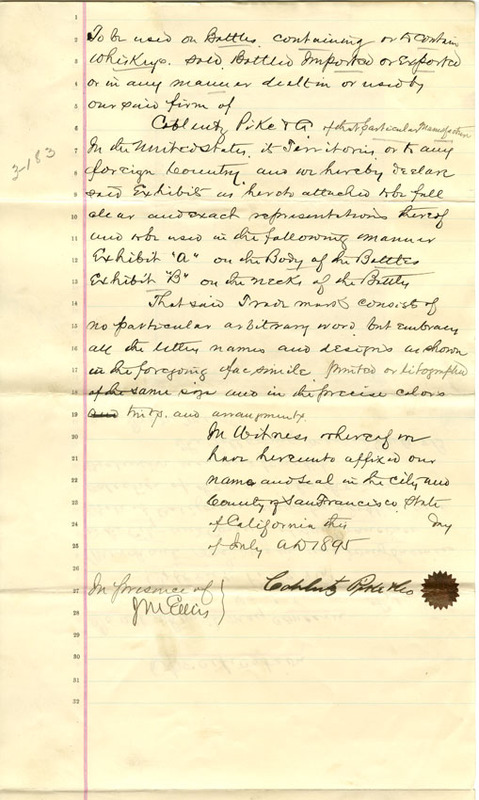 1
2 To be used on Bottles, containing or to contain
3 Whiskeys. Sold, Bottled Imported or Exported
4 or in any manner dealt in or used by
5 our said firm of
6 Coblentz Pike & Co. of that particular Manufacture
7 In the United States, it Territories, or to any
8 foreign Country and we hereby declare
3-183
9 said Exhibits as hereto attached to be full
10 clear and exact representations hereof
11 and to be used in the following manner
12 Exhibit "A" on the Body of the Bottles
13 Exhibit "B" on the necks of the Bottles
14 That said Trade mark consists of
15 no particular arbitrary word, but embraces
16 all the letters names and designs as shown
17 in the foregoing facsimile, printed or litographed
18 of the same size and in the precise colors
19 and tints, and arrangements.
20 In Witness whereof we
21 have hereunto affixed our
22 name and seal in the City and
23 County of San Francisco, State
24 of California this day
25 of July A.D 1895
26
27 In presence of Coblentz Pike & Co
28 J M Ellis
29
30
31
32